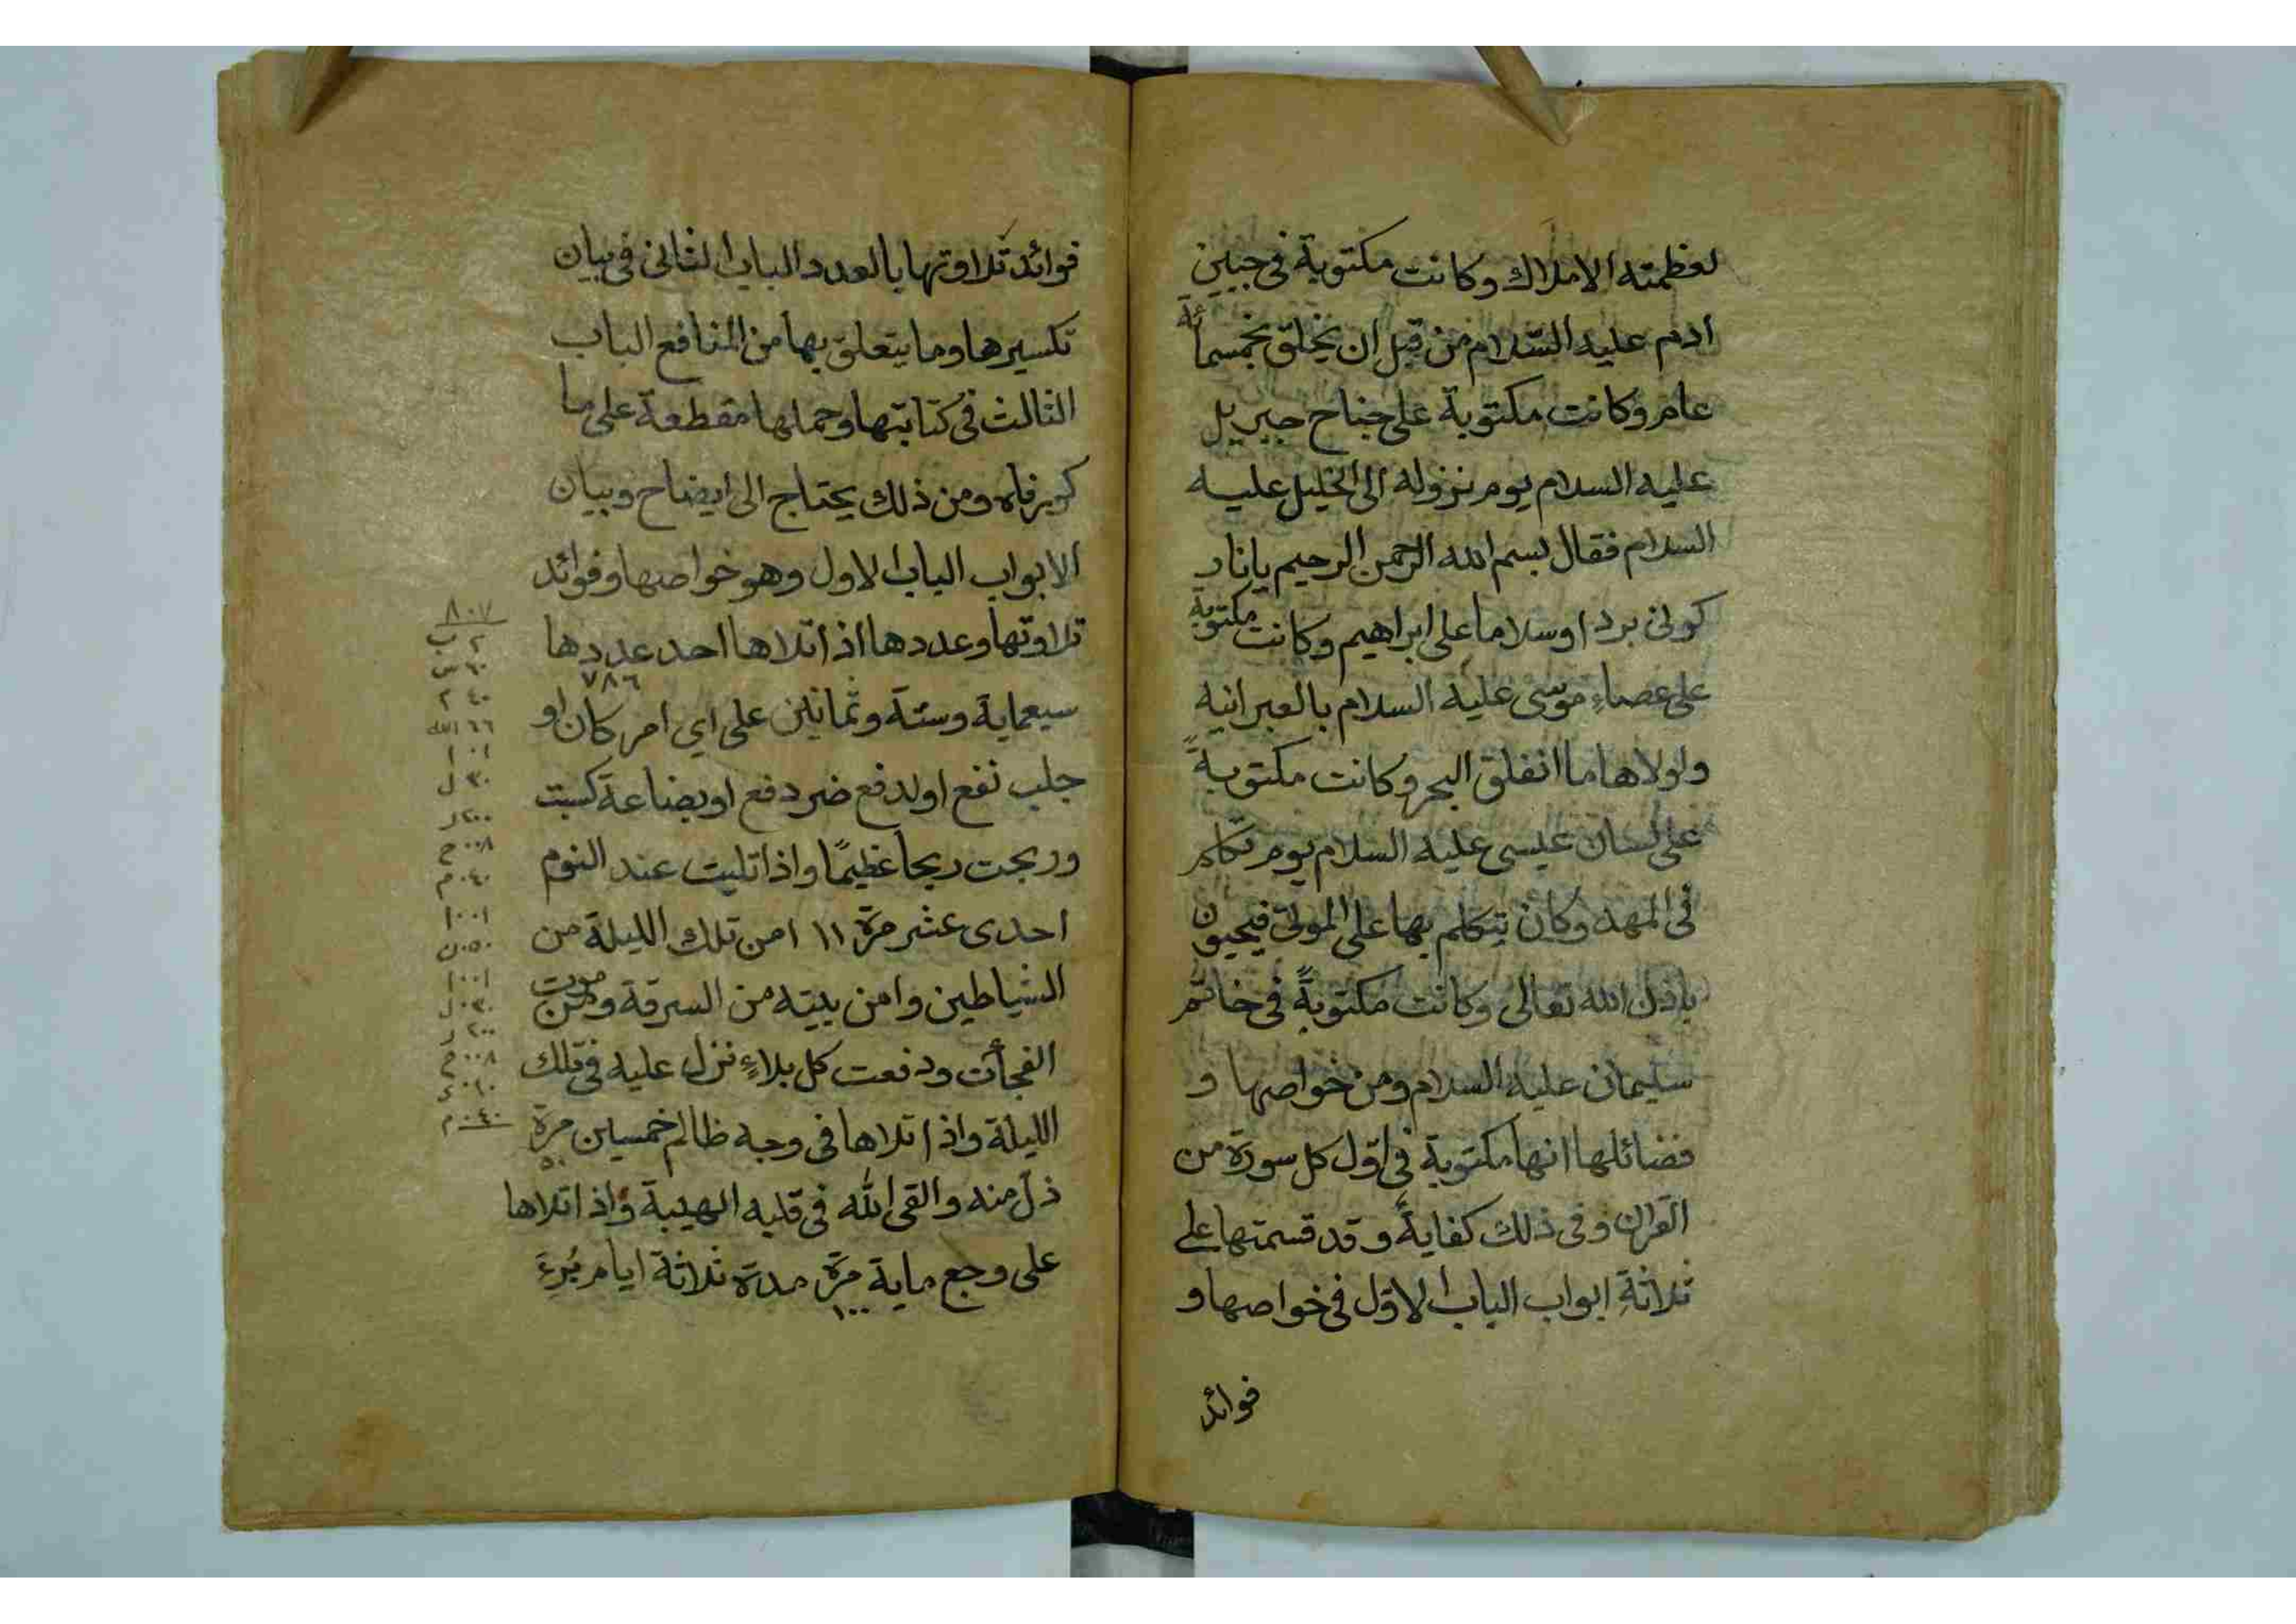 لعظمته الاملاك وكانت مكتوبة فى جبين
ادم عليه السّلام من قبل ان يخلق بخمسمائة
عام وكانت مكتوبة على جناح جبريل
عليه السلام يوم نزوله الى الخليل عليه
السلام فقال بسم الله الرحمن الرحيم يا نار
كونى بردا وسلاما على ابراهيم وكانت مكتوبة
على عصاء موسى عليه السلام بالعبرانية
ولولاها ما انفلق البحر وكانت مكتوبةً
على لسان عيسى عليه السلام يوم تكلم
فى المهد وكان يتكلم بها على الموتى فيحيون
باذن الله تعالى وكانت مكتوبةً فى خاتم
سليمان عليه السلام ومن خواصها و
فضائلها انها مكتوبة فى اوّل كل سورة من
القران وفى ذلك كفايةً وقد قسمتها على
ثلاثةِ ابواب الباب الاوّل فى خواصها و
فوائد
فوائد تلاوتها بالعدد الباب الثانى فى بيان
تكسيرها وما يتعلق بها من المنافع الباب
الثالث فى كتابتها وحملها مقطعة على ما
ومن ذلك يحتاج الى ايضاح وبيان
الابواب الباب الاول وهو خواصها وفوائد
تلاوتها وعددها اذا تلاها احد عددها
٧٨٦
سبعماية وستة وثمانين على اي امر كان او
جلب نفع او لدفع ضر دفع او بضاعة كسبت
وربحت ربحا عظيمًا واذا تليت عند النوم
احدى عشر مرّة ١١ امن تلك الليلة من
الشياطين وامن بيته من السرقة ومن موت
الفجأت ودفعت كل بلاءٍ نزل عليه فى تلك
الليلة واذا تلاها فى وجه ظالم خمسين مرّة
٥٠
ذلّ منه والقى الله فى قلبه الهيبة واذا تلاها
على وجع ماية مرّة مدة ثلاثة ايام بُرِءَ
١٠٠
٨٠٧
٢ ب
٦٠ س
٤٠ م
٦٦ الله
١ ا
٣٠ ل
٢٠٠ ر
٠٠٨ ح
٠٤٠ م
٠٠١ ا
٠٥٠ ن
٠٠١ ا
٠٣٠ ل
٢٠٠ ر
٠٠٨ ح
٠١٠ ي
٠٤٠ م